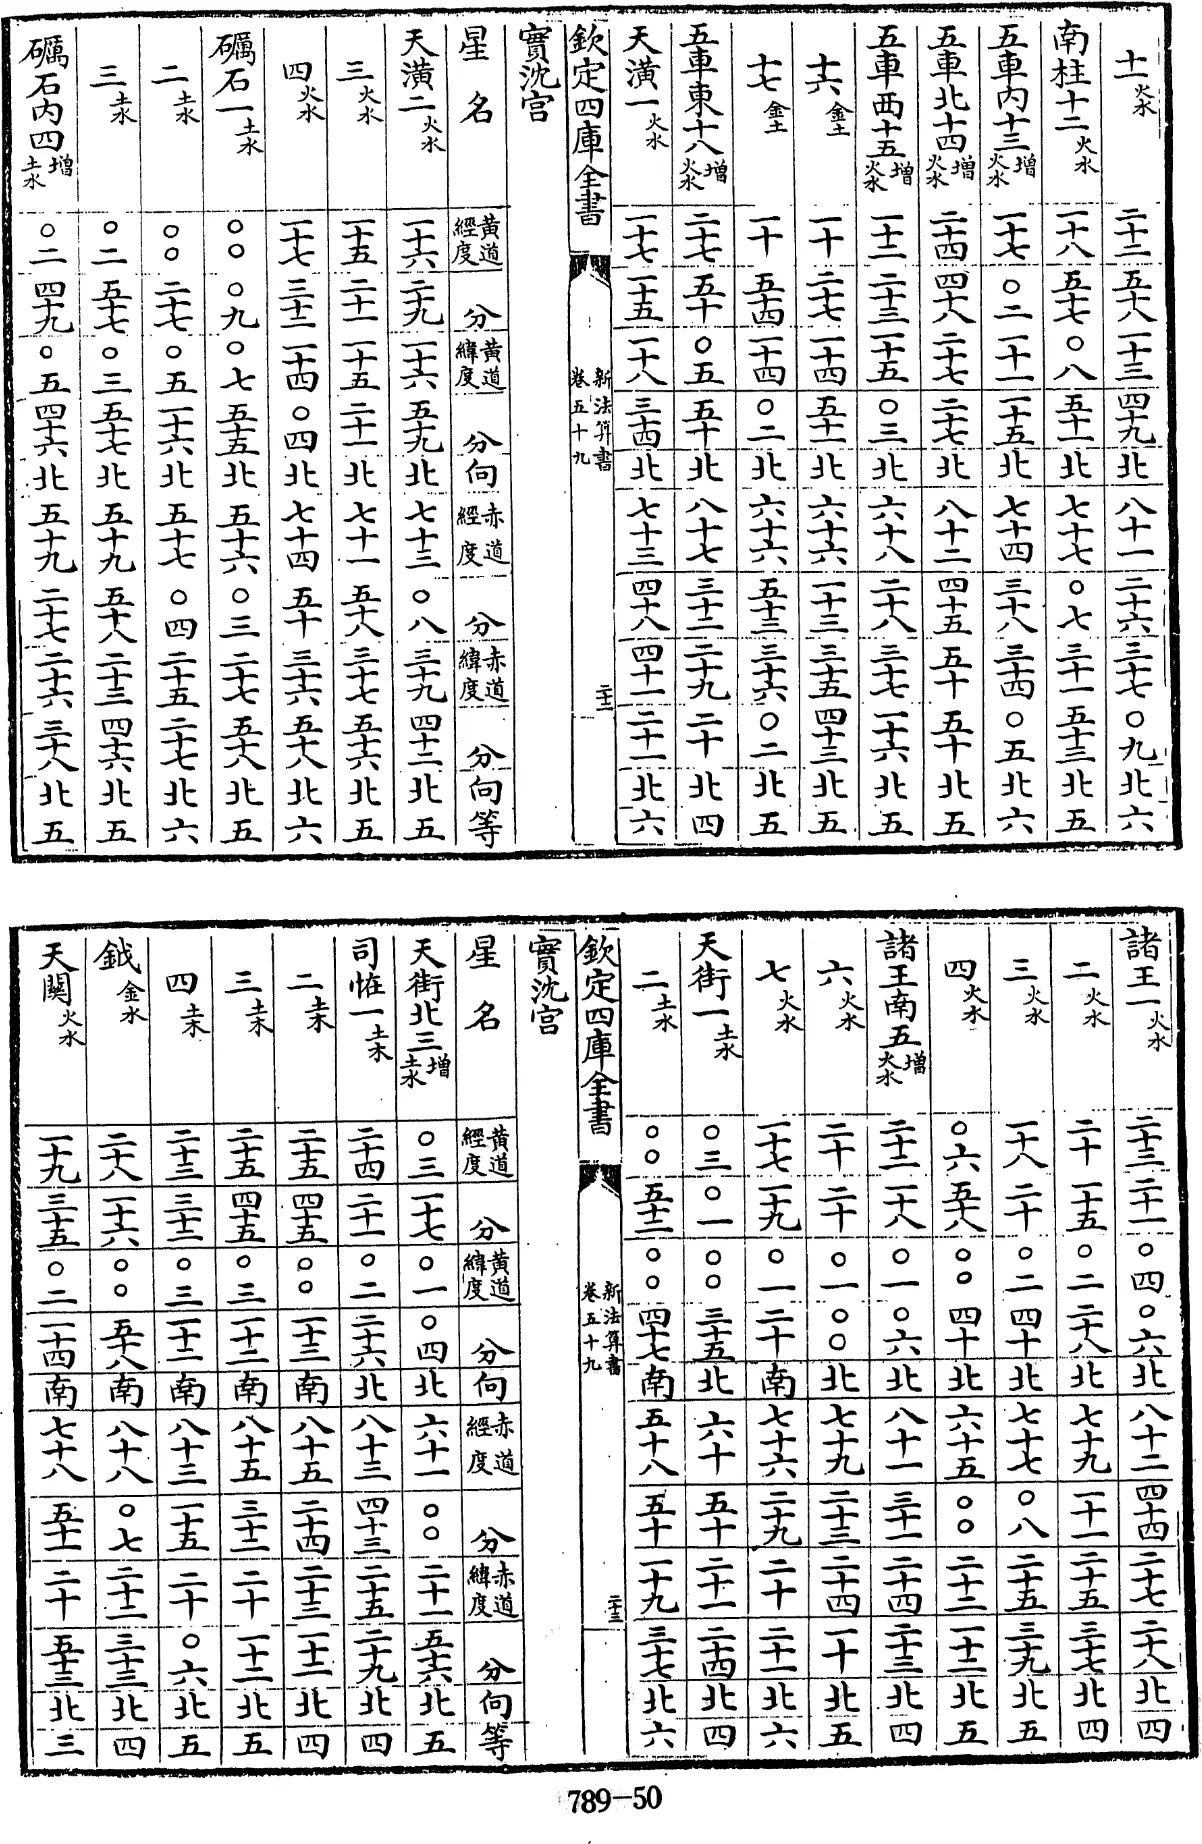 十一 火水 二十二 五十八 一十三 四十九 北 八十一 二十六 三十七 〇九 北 六
南柱十二 火水 一十八 五十七 〇八 五十一 北 七十七 〇七 三十一 五十三 北 五
五車內十三 增火水 一十七 〇二 一十一 一十五 北 七十四 三十八 三十四 〇五 北 六
五車北十四 增火水 二十四 四十八 二十七 二十七 北 八十二 四十五 五十 五十 北 五
五車西十五 增火水 一十二 二十三 一十五 〇三 北 六十八 二十八 三十七 一十六 北 五
十六 金土 一十 二十七 一十四 五十一 北 六十六 一十三 三十五 四十三 北 五
十七 金土 一十 五十四 一十四 〇二 北 六十六 五十三 三十六 〇二 北 五
五車東十八 增火水 二十七 五十 〇五 五十 北 八十七 三十二 二十九 二十 北 四
天潢一 火水 一十七 一十五 一十八 三十四 北 七十三 四十八 四十一 二十一 北 六
欽定四庫全書 新法算書 卷五十九 二十二
實沈宮
星名 黃道經度 分 黃道緯度 分 向 赤道經度 分 赤道緯度 分 向 等
天潢二 火水 一十六 二十九 一十六 五十九 北 七十三 〇八 三十九 四十二 北 五
三 火水 一十五 二十一 一十五 二十一 北 七十一 五十八 三十七 五十六 北 五
四 火水 一十七 三十二 一十四 〇四 北 七十四 五十 三十六 五十八 北 六
礪石一 土水 〇〇 〇九 〇七 五十五 北 五十六 〇三 二十七 五十八 北 五
二 土水 〇〇 二十七 〇五 一十六 北 五十七 〇四 二十五 二十七 北 六
三 土水 〇二 五十七 〇三 五十七 北 五十九 五十八 二十三 四十六 北 五
礪石內四 增土水 〇二 四十九 〇五 四十六 北 五十九 二十七 二十六 三十八 北 五
諸王一 火水 二十三 二十一 〇四 〇六 北 八十二 四十四 二十七 二十八 北 四
二 火水 二十 一十五 〇二 二十八 北 七十九 一十一 二十五 三十七 北 四
三 火水 一十八 二十 〇二 四十 北 七十七 〇八 二十五 三十九 北 五
四 火水 〇六 五十八 〇〇 四十 北 六十五 〇〇 二十二 一十二 北 五
諸王南五 增火水 二十二 一十八 〇一 〇六 北 八十一 三十一 二十四 二十三 北 四
六 火水 二十 二十 〇一 〇〇 北 七十九 二十三 二十四 一十 北 五
七 火水 一十七 一十九 〇一 二十 南 七十六 二十九 二十 二十一 北 六
天街一 土水 〇三 〇一 〇〇 三十五 北 六十 五十 二十一 二十四 北 四
二 土水 〇〇 五十二 〇〇 四十七 南 五十八 五十 一十九 三十七 北 六
欽定四庫全書 新法算書 卷五十九 二十三
實沈宮
星名 黃道經度 分 黃道緯度 分 向 赤道經度 分 赤道緯度 分 向 等
天街北三 增土水 〇三 一十七 〇一 〇四 北 六十一 〇〇 二十一 五十六 北 五
司恠一 土木 二十四 二十一 〇二 二十六 北 八十三 四十三 二十五 二十九 北 四
二 土木 二十五 四十五 〇〇 一十三 南 八十五 二十四 二十三 一十二 北 四
三 土木 二十五 四十五 〇三 一十二 南 八十五 三十二 二十 一十二 北 五
四 土木 二十三 三十二 〇三 一十一 南 八十三 一十五 二十 〇六 北 五
鉞 金水 二十八 一十六 〇〇 五十八 南 八十八 〇七 二十二 三十三 北 四
天關 火水 一十九 三十五 〇二 一十四 南 七十八 五十一 二十 五十三 北 三
789-50